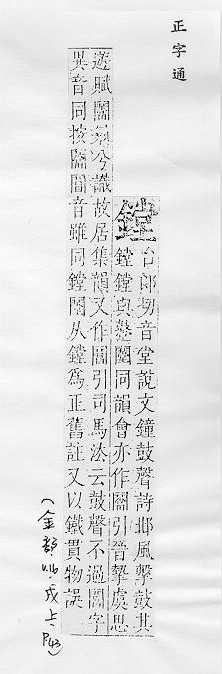 正字通
鏜
台郎切音堂說文鐘鼓聲詩邶風擊鼓其
鏜鏜與鼞闛同韻會亦作闛引晉摯虞思
遊賦闛兮識故居集韻又作闛引司馬法云鼓聲不過闛字
異音同按闛閶音雖同鏜从鏜為正舊註又以鐵貫物誤
(金部 戌上 P43)